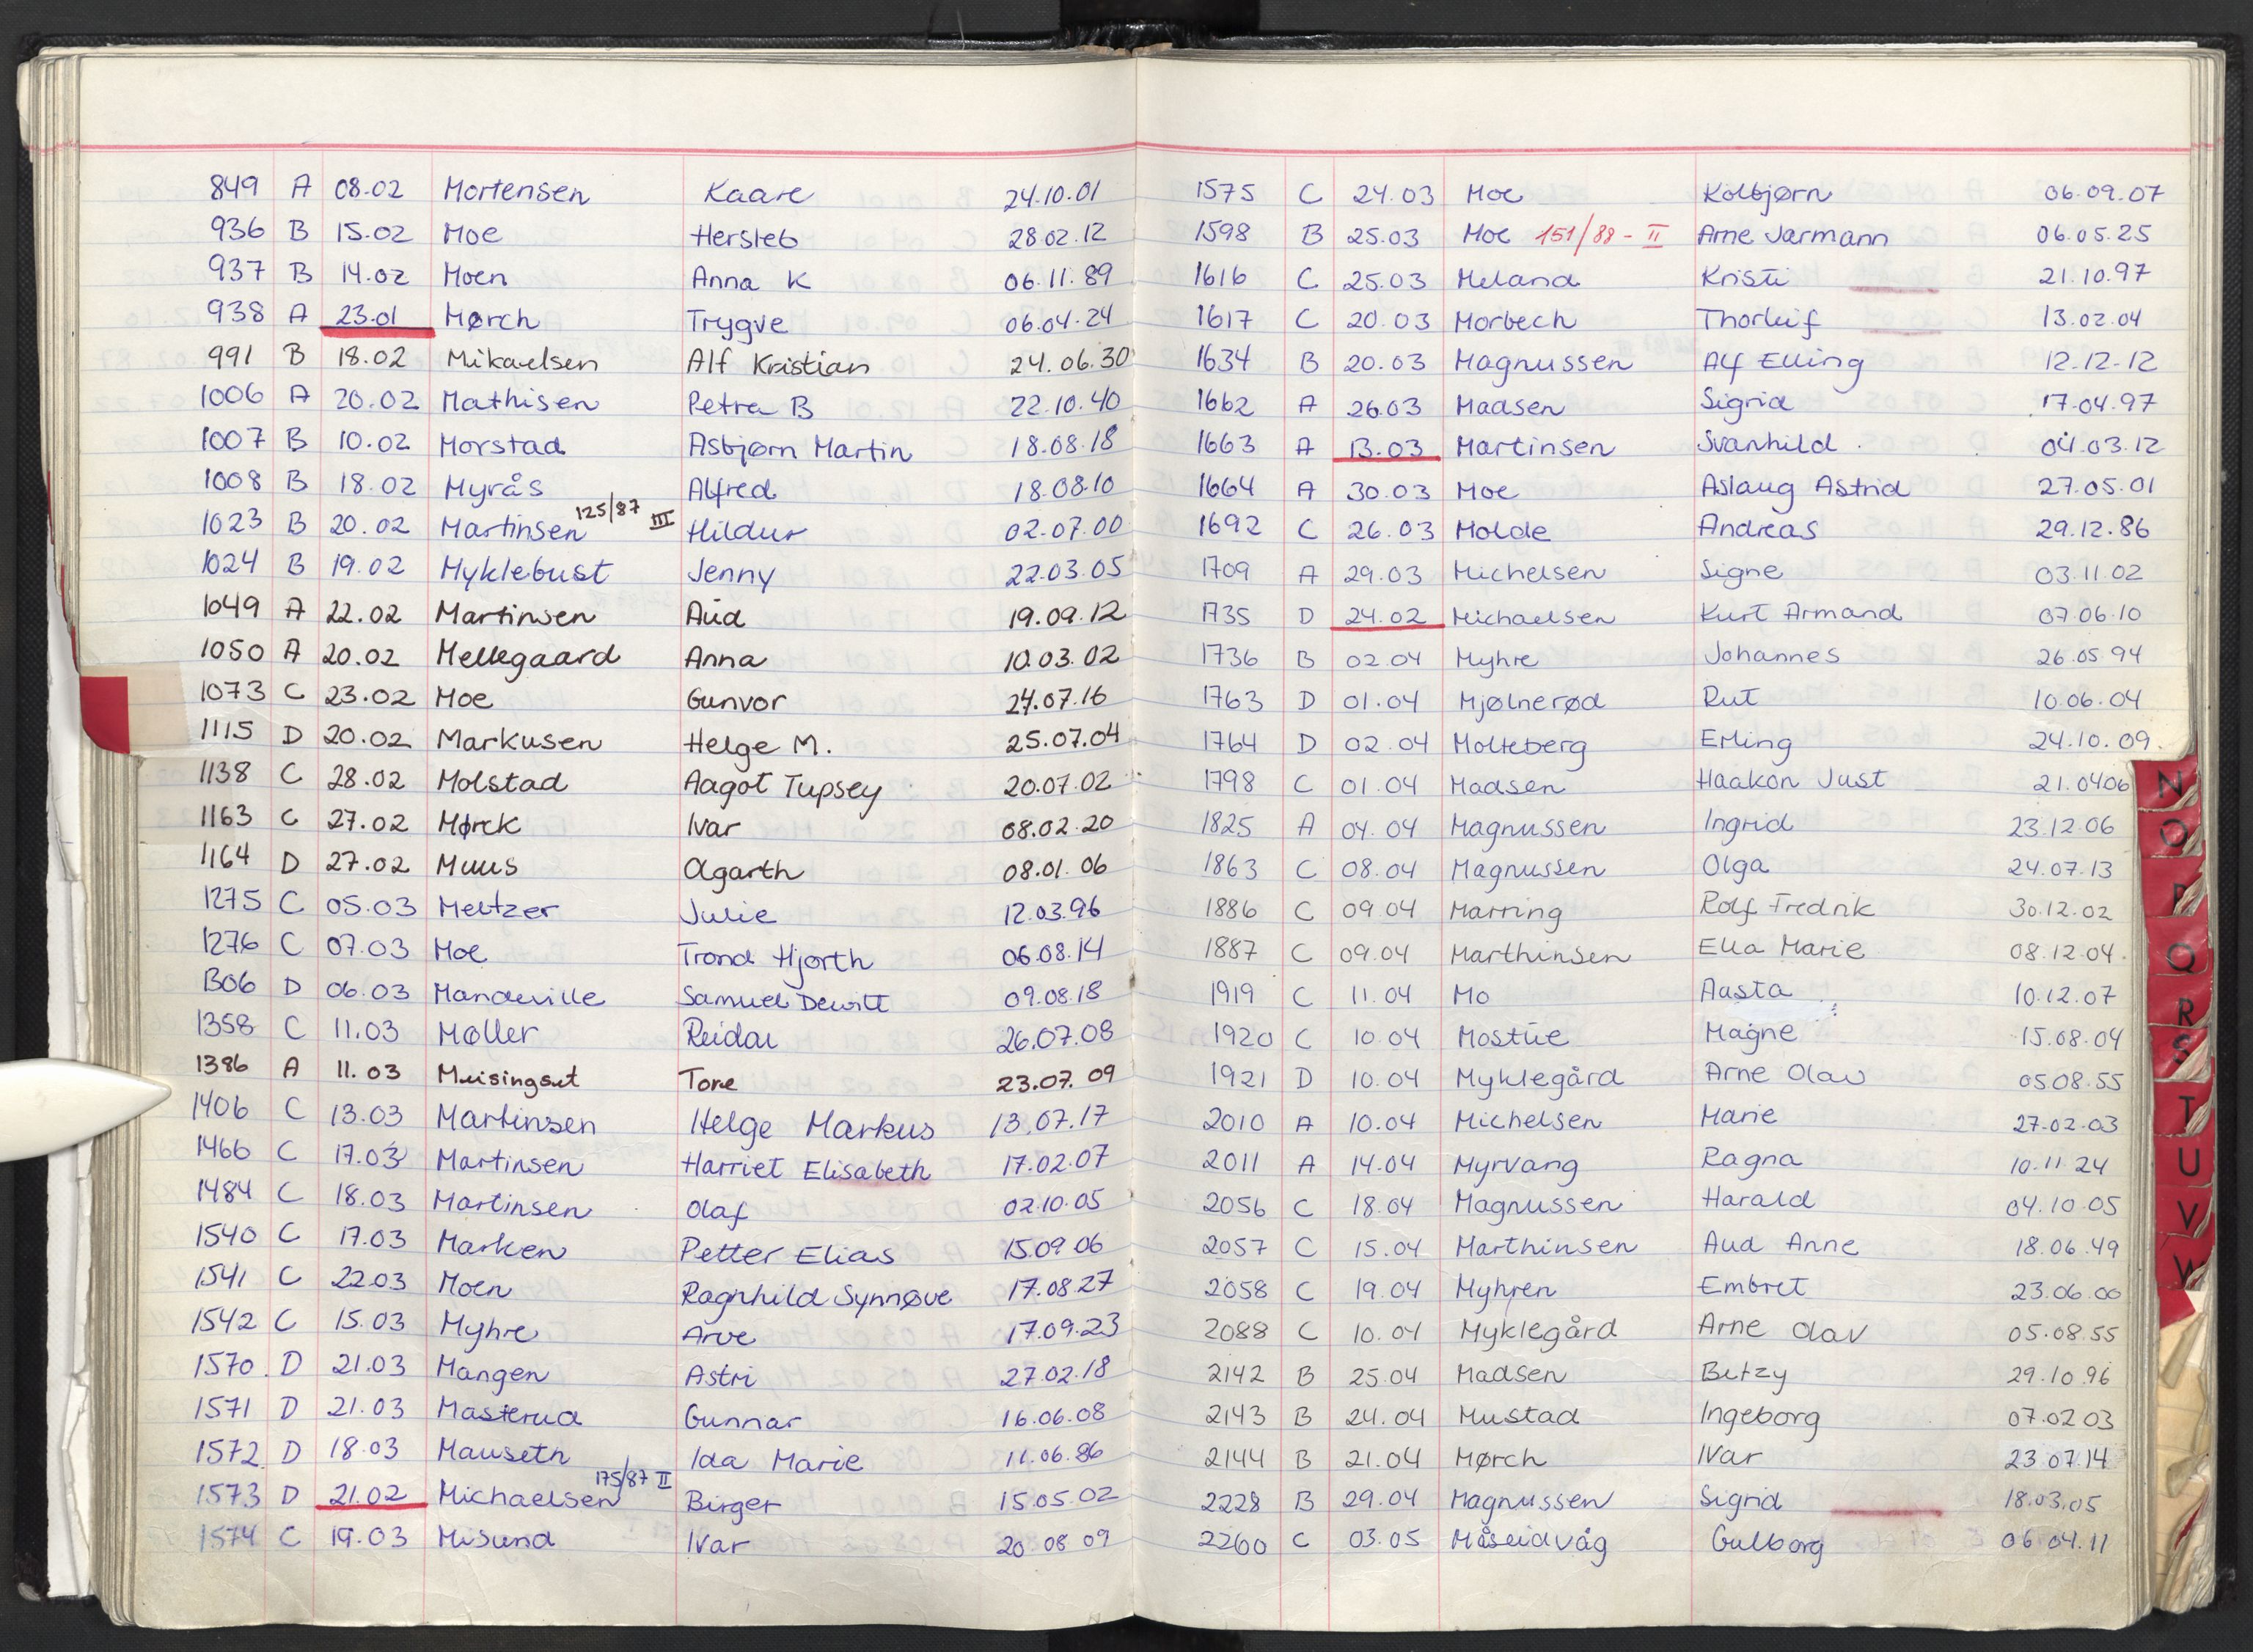 849 A 08.02 Mortensen Kaare 24.10.01
936 B 15.02 Moe Hersleb 28.02.12
937 B 14.02 Moen Anna K 06.11.89
938 A 23.01 Mørch Trygve 06.04.24
991 B 18.02 Mikaelsen Alf Kristian 24.06.30
1006 A 20.02 Mathisen Petra B 22.10.40
1007 B 10.02 Morstad Asbjørn Martin 18.08.18
1008 B 18.02 Myrås Alfred 18.08.10
1023 B 20.02 Martinsen 125/87 III Hildur 02.07.00
1024 B 19.02 Myklebust Jenny 22.03.05
1049 A 22.02 Martinsen Aud 19.09.12
1050 A 20.02 Mellegaard Anna 10.03.02
1073 C 23.02 Moe Gunvor 24.07.16
1115 D 20.02 Markusen Helge M. 25.07.04
1138 C 28.02 Molstad Aagot Tupsey 20.07.02
1163 C 27.02 Mørck Ivar 08.02.20
1164 D 27.02 Muus Olgarth 08.01.06
1275 C 05.03 Meltzer Julie 12.03.96
1276 C 07.03 Moe Trond Hjorth 06.08.14
1306 D 06.03 Mandeville Samuel Dewitt 09.08.18
1358 C 11.03 Møller Reidar 26.07.08
1386 A 11.03 Meisingset Tore 23.07.09
1406 C 13.03 Martinsen Helge Markus 13.07.17
1466 C 17.03 Martinsen Harriet Elisabeth 17.02.07
1484 C 18.03 Martinsen Olaf 02.10.05
1540 C 17.03 Marken Petter Elias 15.09.06
1541 C 22.03 Moen Ragnhild Synnøve 17.08.27
1542 C 15.03 Myhre Arve 17.09.23
1570 D 21.03 Mangen Astri 27.02.18
1571 D 21.03 Masterud Gunnar 16.06.08
1572 D 18.03 Mauseth Ida Marie 11.06.86
1573 D 21.02 Michaelsen 175/87 II Birger 15.05.02
1574 C 19.03 Misund Ivar 20 08 09
1575 C 24.03 Moe Kolbjørn 06.09.07
1598 B 25.03 Moe 151/88 - II Arne Jarmann 06.05.25
1616 C 25.03 Meland Kristi 21.10.97
1617 C 20.03 Morbech Thorleif 13.02.04
1634 B 20.03 Magnussen Alf Elling 12.12-12
1662 A 26.03 Madsen Sigrid 17.04.97
1663 A 13.03 Martinsen Svanhild 04.03.12
1664 A 30.03 Moe Aslaug Astrid 27.05.01
1692 C 26.03 Molde Andreas 29.12.86
1709 A 29.03 Michelsen Signe 03.11.02
1735 D 24.02 Michaelsen Kurt Armand 07.06.10
1736 B 02.04 Myhre Johannes 26.05.94
1763 D 01.04 Mjølnerød Rut 10.06.04
1764 D 02.04 Molteberg Erling 24.10.09.
1798 C 01.04 Madsen Haakon Just 21.0406
1825 A 04.04 Magnussen Ingrid 23.12.06
1863 C 08.04 Magnussen Olga 24.07.13
1886 C 09.04 Marring Rolf Fredrik 30.12.02
1887 C 09.04 Marthinsen Ella Marie 08.12.04.
1919 C 11.04 Mo Aasta 10.12.07
1920 C 10.04 Mostue Magne 15.08.04
1921 D 10.04 Myklegård Arne Olav 0508.55
2010 A 10.04 Michelsen Marie 27.02.03
2011 A 14.04 Myrvang Ragna 10.11.24
2056 C 18.04 Magnussen Harald 04.10.05
2057 C 15.04 Marthinsen Aud Anne 18.06.49
2058 C 19.04 Myhren Embret 23.06.00
2088 C 10.04 Myklegård Arne Olav 05.08.55
2142 B 25.04 Madsen Betzy 29.10.96
2143 B 24.04 Mustad Ingeborg 07.02 03
2144 B 21.04 Mørch Ivar 23.07.14
2228 B 29.04 Magnussen Sigrid 18.03.05
2260 C 03.05 Måseidvåg Gulborg 06.04.11
N
O
P
Q
R
S
T
U
V
W